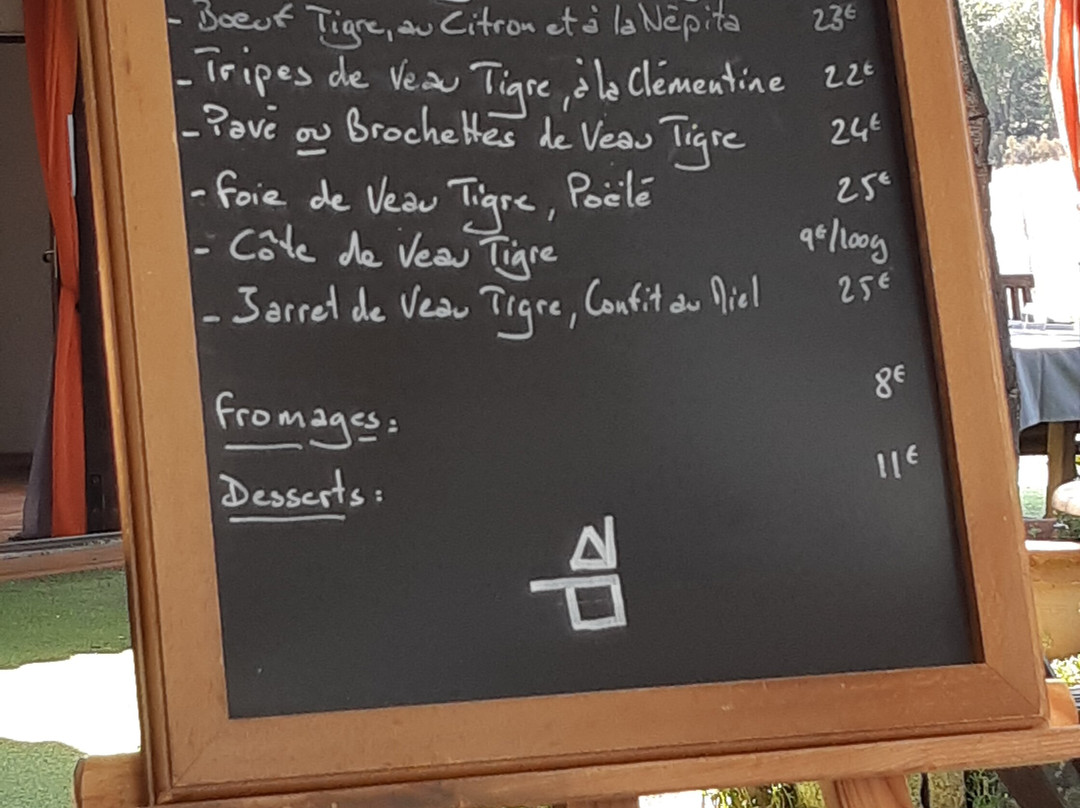 - Boeuf Tigre, au Citron et à la Nèpita 23€
- Tripes de Veau Tigre, à la Clémentine 22€
- Pavé ou Brochettes de Veau Tigre 24€
- Foie de Veau Tigre, Poêlé 25€
- Côte de Veau Tigre 9€/100g
- Jarret de Veau Tigre, Confit au Miel 25€
Fromages: 8€
Desserts: 11€